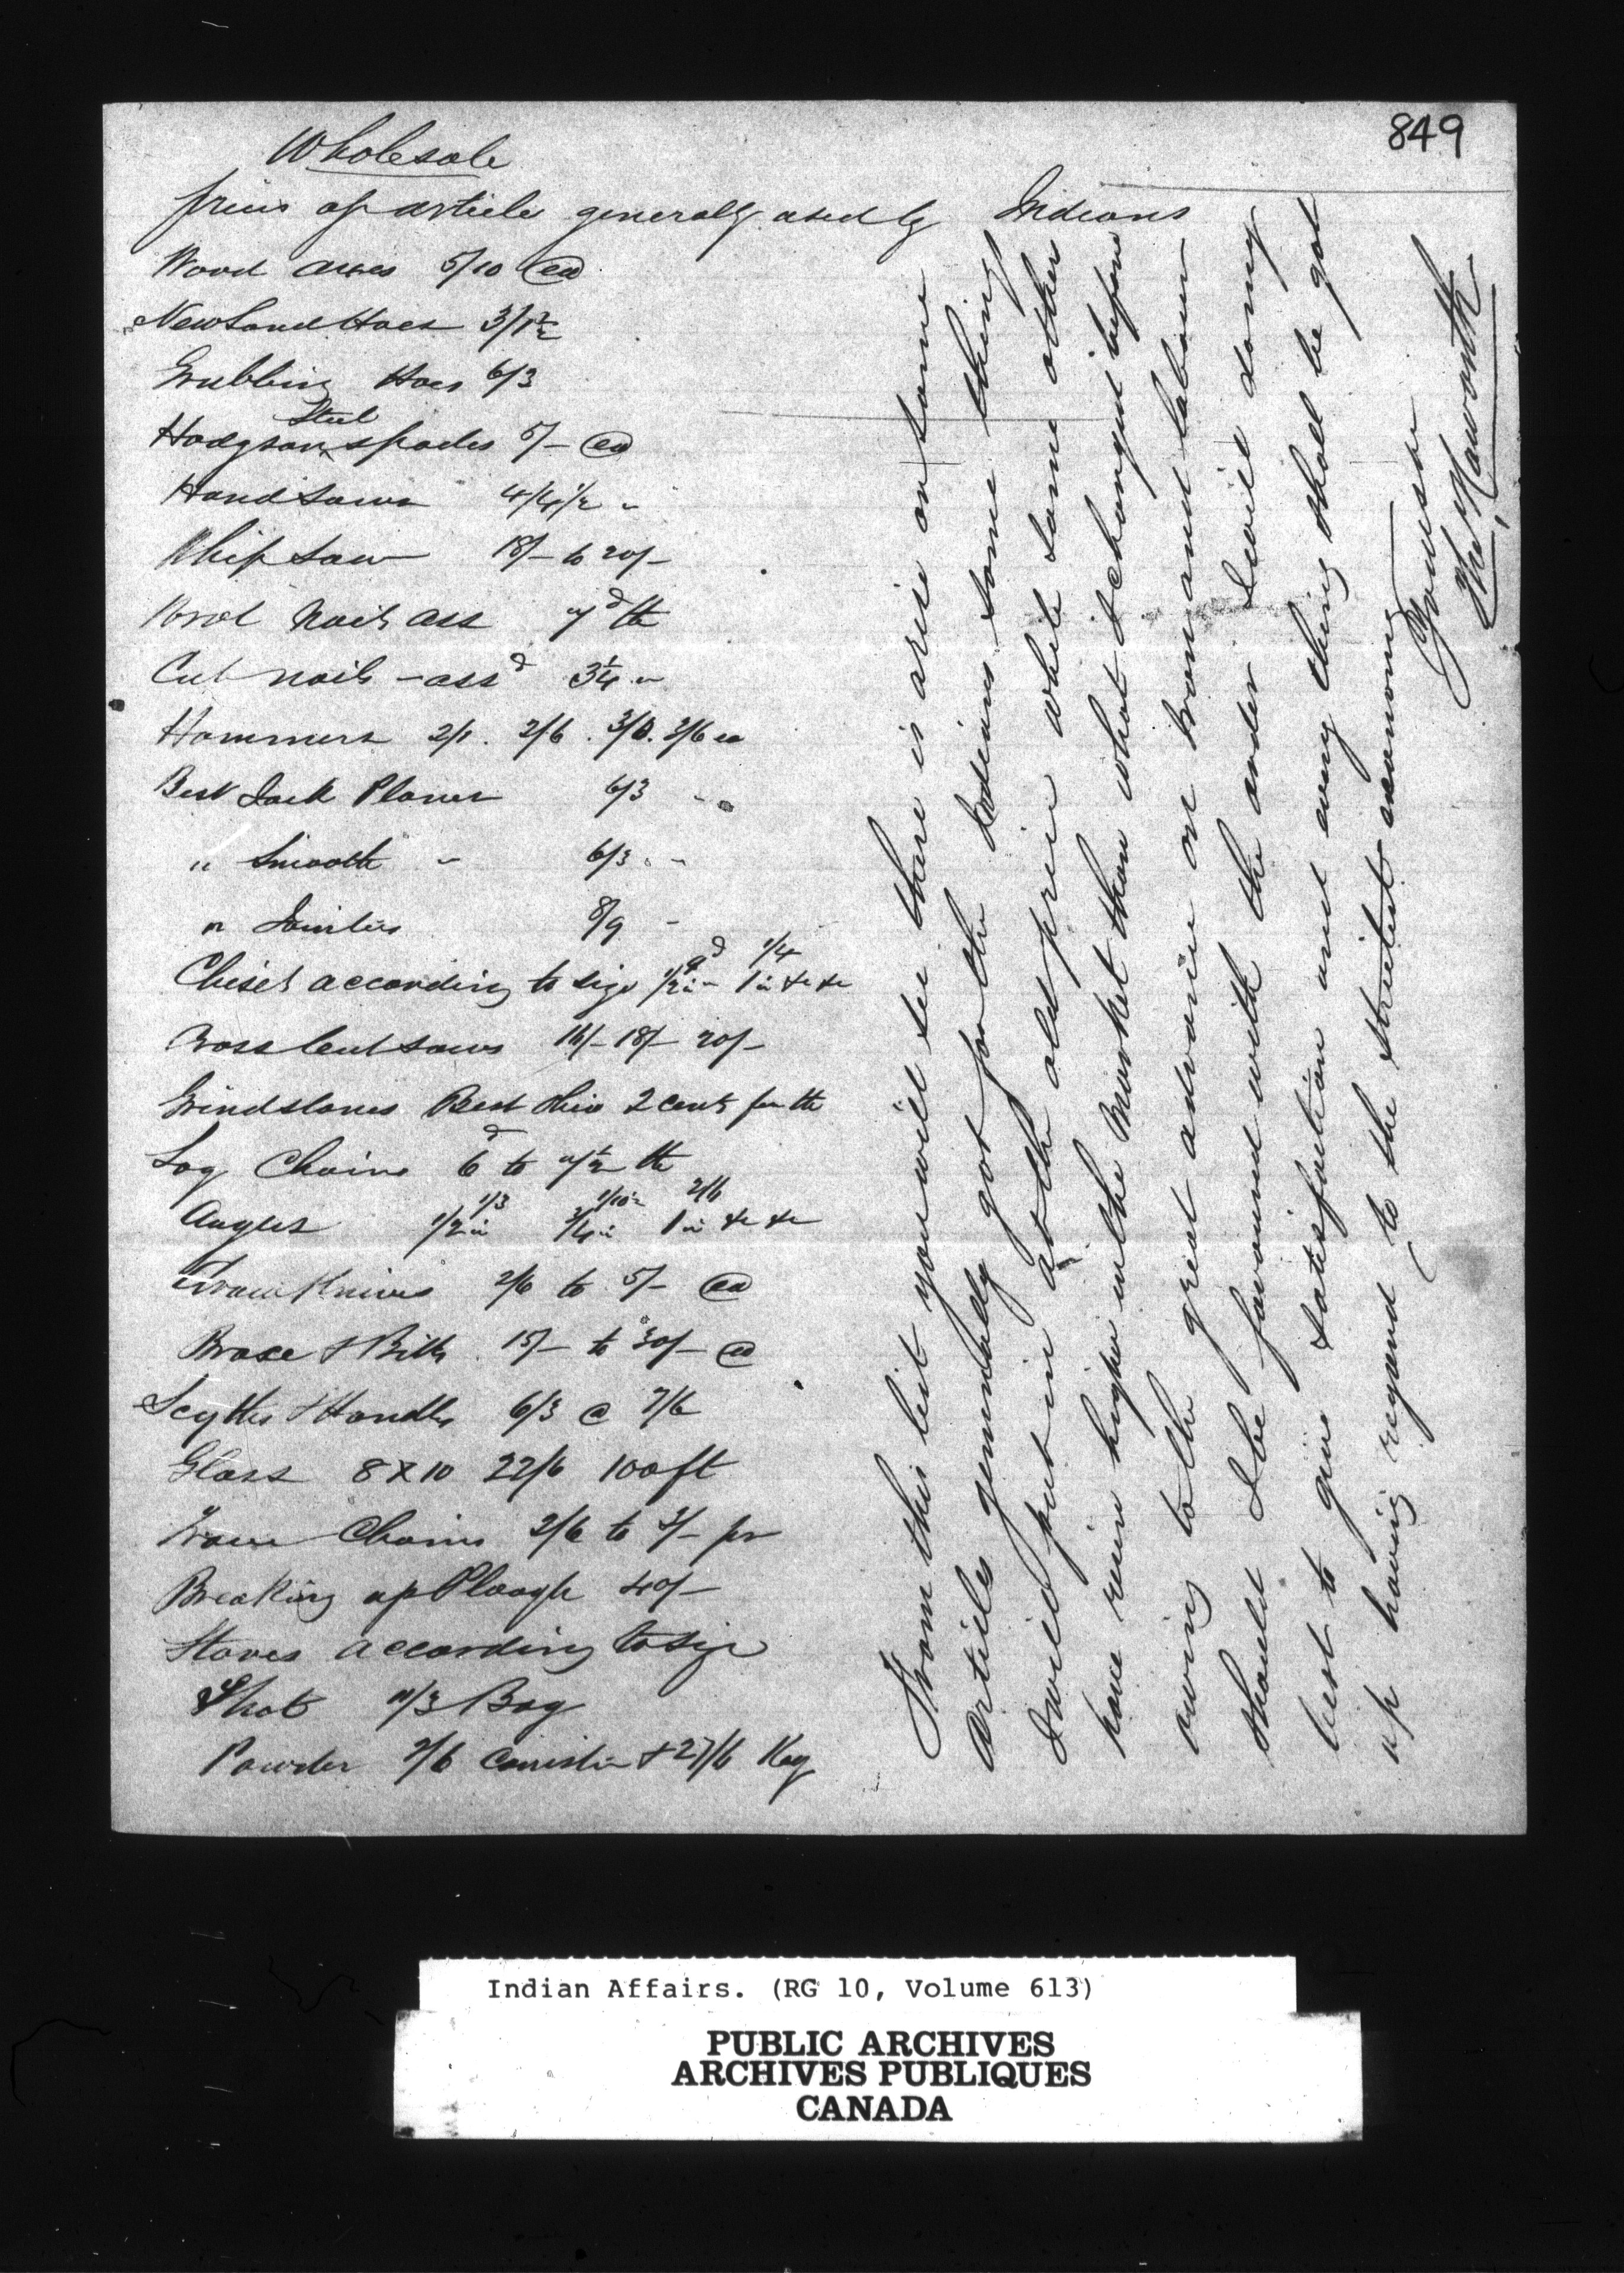 849
Wholesale
prices of article generally used by Indians
Wood axes 5/10 ea
New Land Hoes 3/1½
Grubbing Hoes 6/3
Steel
Hodgson spades 5/- ea
Hand Saws 4/4½ "
Whip Saw 18/- to 20/-
Wrot Nails ass 7d lb
Cut nails - assd 3¼ "
Hammers 2/1. 2/6. 3/6 ea
Best Jack Planes 6/3 "
" Smooth " 6/3 "
" Jointers 8/9 "
9d 1/4
Chisels according to size ½ in 1 in &c &c
Cross Cut saws 16/- 18/- 20/-
Grindstones Best Ohio 2 cents per lb
Log Chains 6d to 7½ lb
1/3 1/10½ 2/6
Augers ½ in ¾ in 1 in &c &c
Draw Knives 2/6 to 5/- ea
Brace & Bitts 15/- to 30/- ea
Scythes & Handles 6/3 @ 7/6
Glass 8 x 10 22/6 100 ft
Chains 2/6 to /- pr
Breaking up Plough 40/-
Stoves according to size
Shot 11/3 Bag
Powder 2/6 Canister & 27/6 Keg
From this list you will see there is a rise on some
articles generally got for the Indians some things
I will put in at the old price while some other
have risen higher in the Market than what I charged before
owing to the great advance on Iron and labour
should I be favoured with the order I will doing
best to give satisfaction and every thing shall be got
up having regard to the strictest economy
Yours &c
Haworth
Indian Affairs. (RG 10, Volume 613)
PUBLIC ARCHIVES
ARCHIVES PUBLIQUES
CANADA